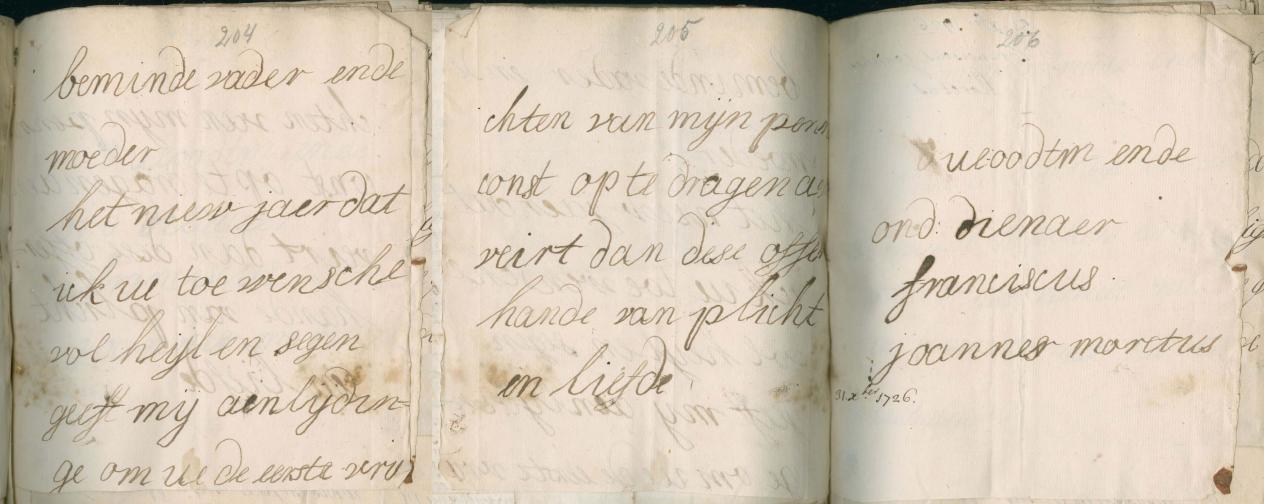 204
beminde vader ende
moeder
het nieuw jaer dat
ick ue toe wensche
vol heijl en segen
geeft mij aenlijdin-
ge om ue de eerste vru
205
chten van mijn pen
const op te dragen
veirt dan dese offer
hande van plicht
en liefde
206
ue oodtm ende
ond: dienaer
franciscus
joannes moretus
31 xber 1726.